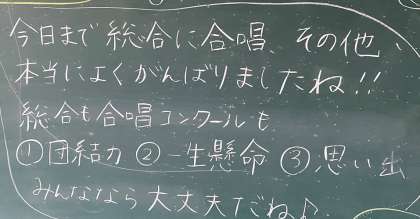 今日まで総合に合唱、その他、
本当によくがんばりましたね!!
総合も合唱コンクールも
①団結力 ②一生懸命 ③思い出
みんななら大丈夫だね♪